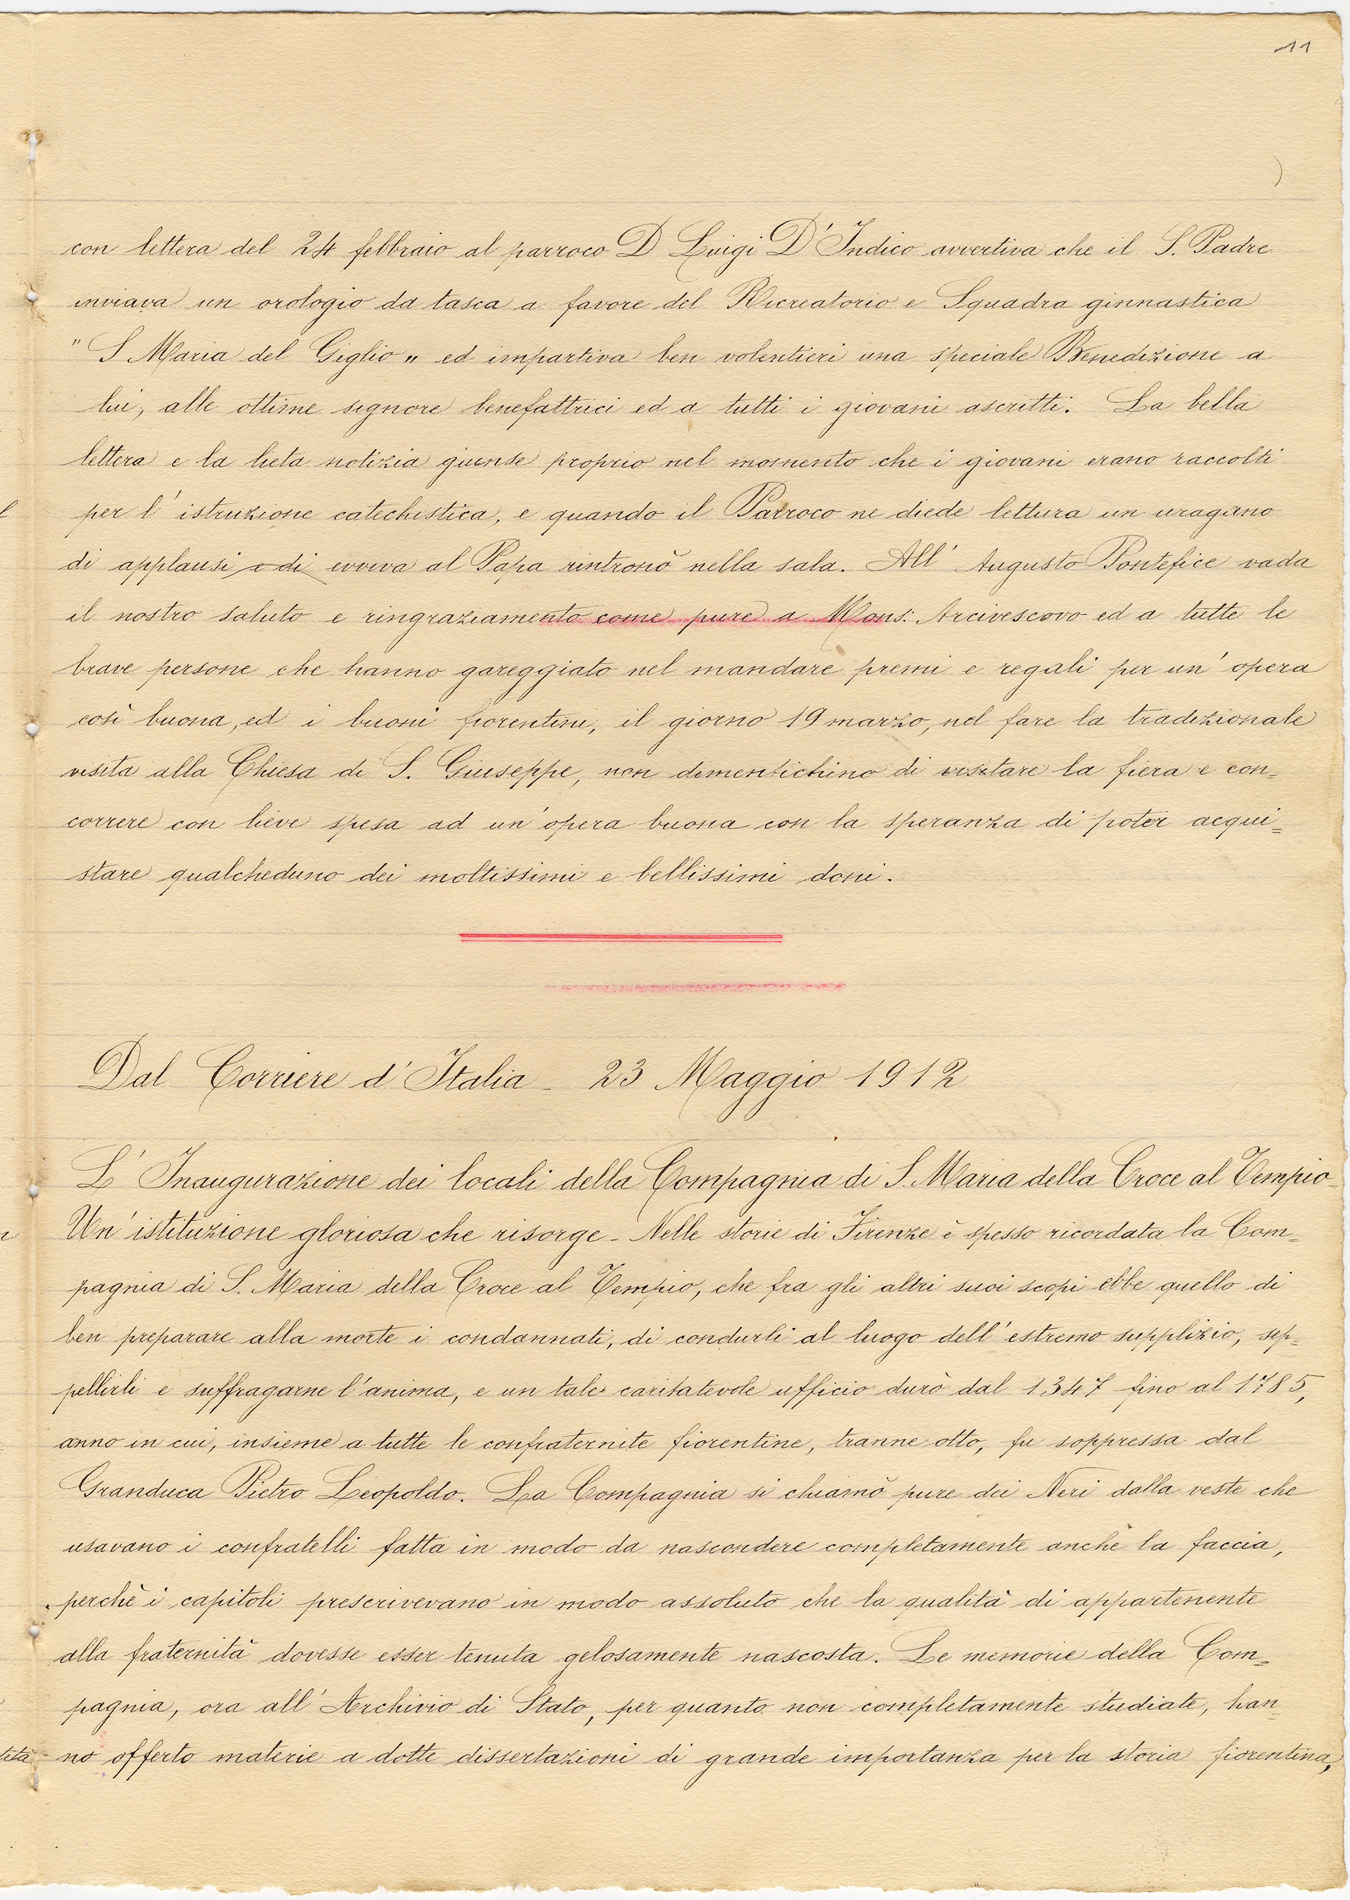 11
con lettera del 24 febbraio al parroco D Luigi D'Indico avvertiva che il S. Padre
inviava un orologio da tasca a favore del Ricreatorio e Squadra ginnastica
"S Maria del Giglio" ed impartiva ben volentieri una speciale Benedizione a
lui, alle ottime signore benefattrici ed a tutti i giovani ascritti. La bella
lettera e la lieta notizia giunse proprio nel momento che i giovani erano raccolti
per l'istruzione catechistica, e quando il Parroco ne diede lettura un uragano
di applausi e di evviva al Papa rintronò nella sala. All' Augusto Pontefice vada
il nostro saluto e ringraziamento come pure a Mons: Arcivescovo ed a tutte le
brave persone che hanno gareggiato nel mandare premi e regali per un' opera
così buona, ed i buoni fiorentini, il giorno 19 marzo, nel fare la tradizionale
visita alla Chiesa di S. Giuseppe, non dimentichino di visitare la fiera e con=
correre con lieve spesa ad un'opera buona con la speranza di poter acqui=
stare qualcheduno dei moltissimi e bellissimi doni.
Dal Corriere d'Italia - 23 Maggio 1912
L'Inaugurazione dei locali della Compagnia di S. Maria della Croce al Tempio-
Un'istituzione gloriosa che risorge - Nelle storie di Firenze è spesso ricordata la Com=
pagnia di S. Maria della Croce al Tempio, che fra gli altri suoi scopi ebbe quello di
ben preparare alla morte i condannati, di condurli al luogo dell'estremo supplizio, sep=
pellirli e suffragarne l'anima, e un tale caritatevole ufficio durò dal 1347 fino al 1785,
anno in cui, insieme a tutte le confraternite fiorentine, tranne otto, fu soppressa dal
Granduca Pietro Leopoldo. La Compagnia si chiamò pure dei Neri dalla veste che
usavano i confratelli fatta in modo da nascondere completamente anche la faccia,
perchè i capitoli prescrivevano in modo assoluto che la qualità di appartenente
alla fraternità dovesse esser tenuta gelosamente nascosta. Le memorie della Com=
pagnia, ora all'Archivio di Stato, per quanto non completamente studiate, han=
no offerto materie a dotte dissertazioni di grande importanza per la storia fiorentina,